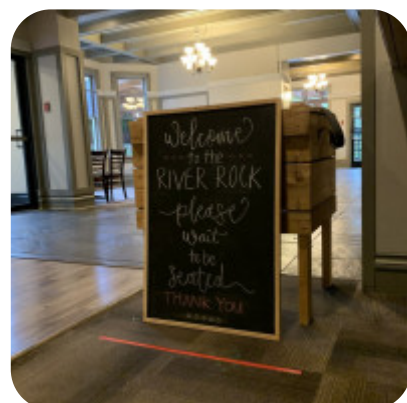 Welcome
to the
RIVER ROCK
please
wait
to be
seated
THANK YOU